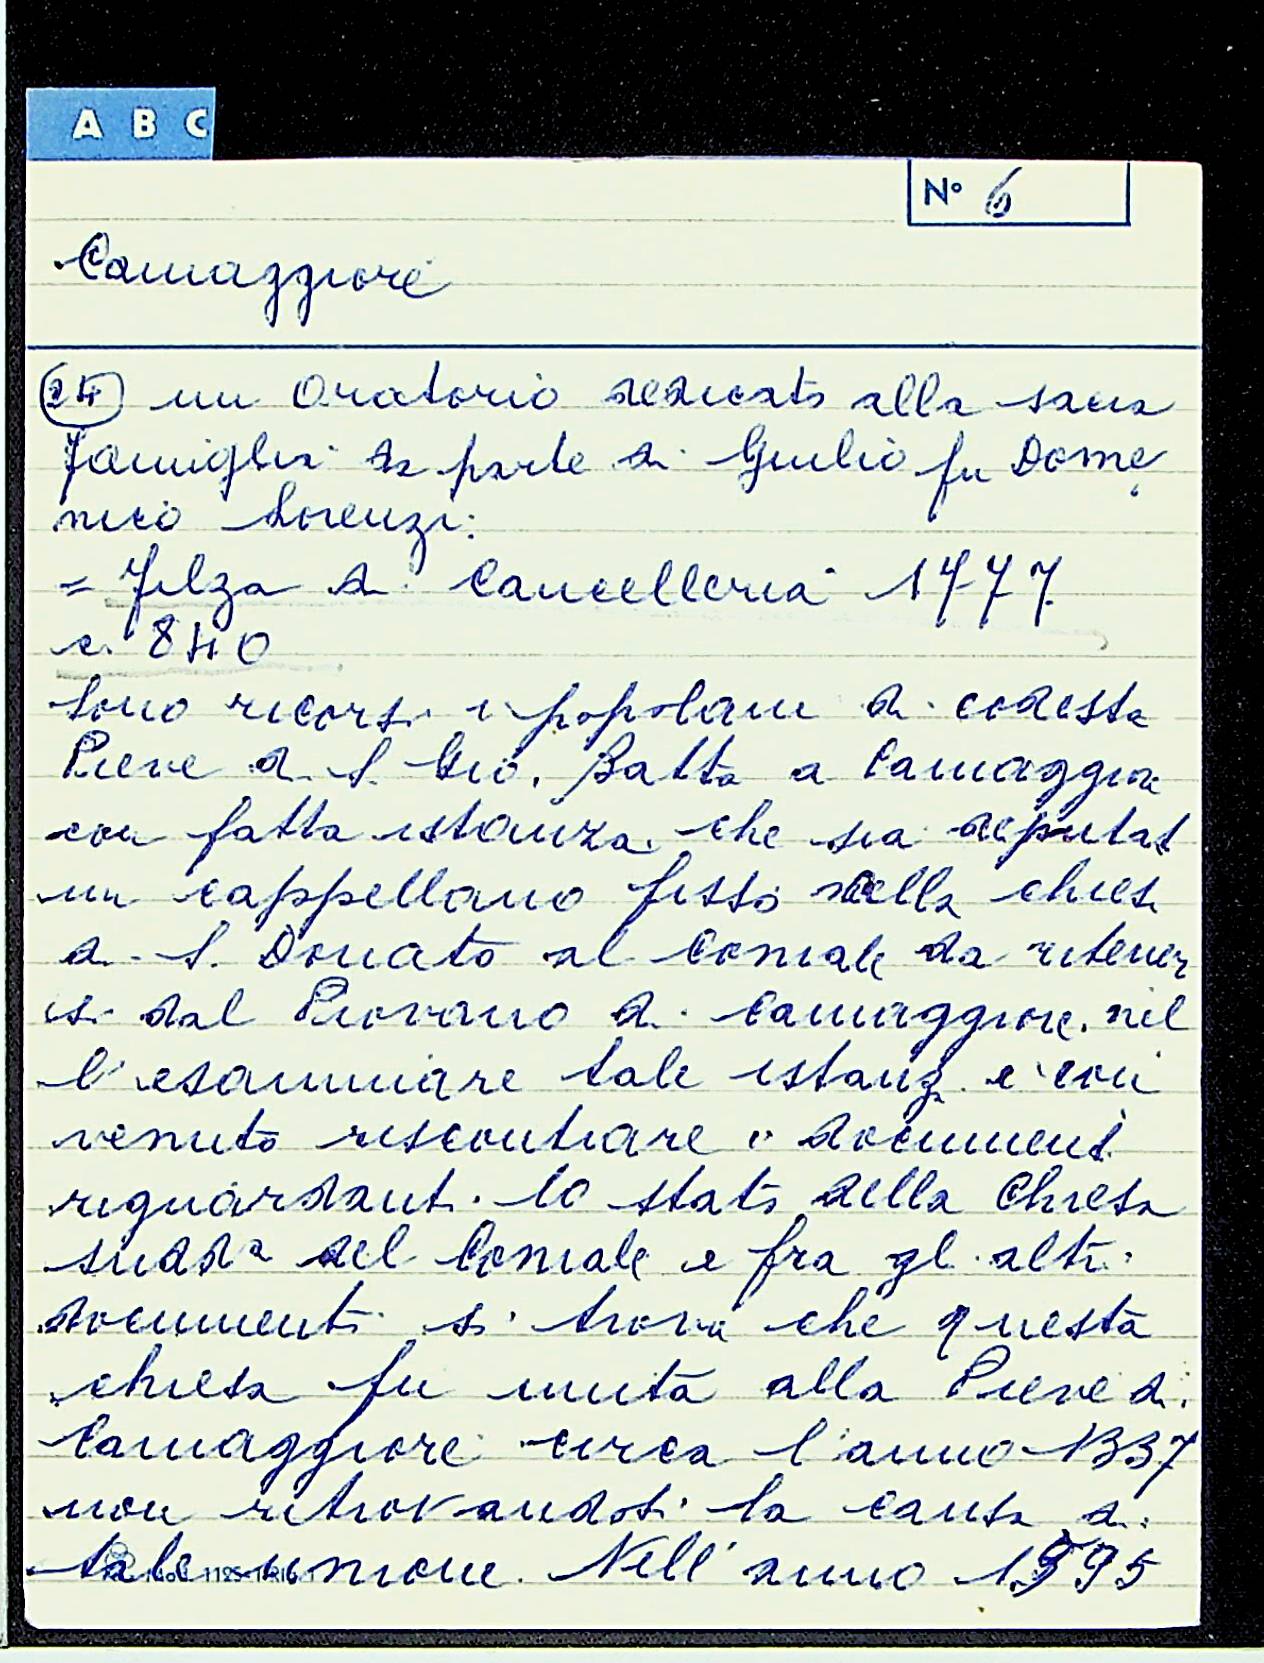 A B C
N° 6
Camaggiore
24 un Oratorio dedicato alla sacra
famiglia da parte di Giulio fu Dome
nico Lorenzi.
= Filza di Cancelleria 1777
c. 840
Sono ricorsi i popolani di codesta
Pieve di S. Gio. Batta a Camaggiore
con fatta istanza che sia deputat
un cappellano fisso nella chiesa
di S. Donato al Corniale da ritener
si dal Piovano di Camaggiore. nel
l'esaminare tale istanz. è con
venuto riscontrare i documenti
riguardanti lo stato della Chiesa
sudda del Corniale e fra gli altri
documenti si trova che questa
chiesa fu unita alla Pieve di
Camaggiore circa l'anno 1337
non ritrovandosi la causa di
tale unione. Nell'anno 1595